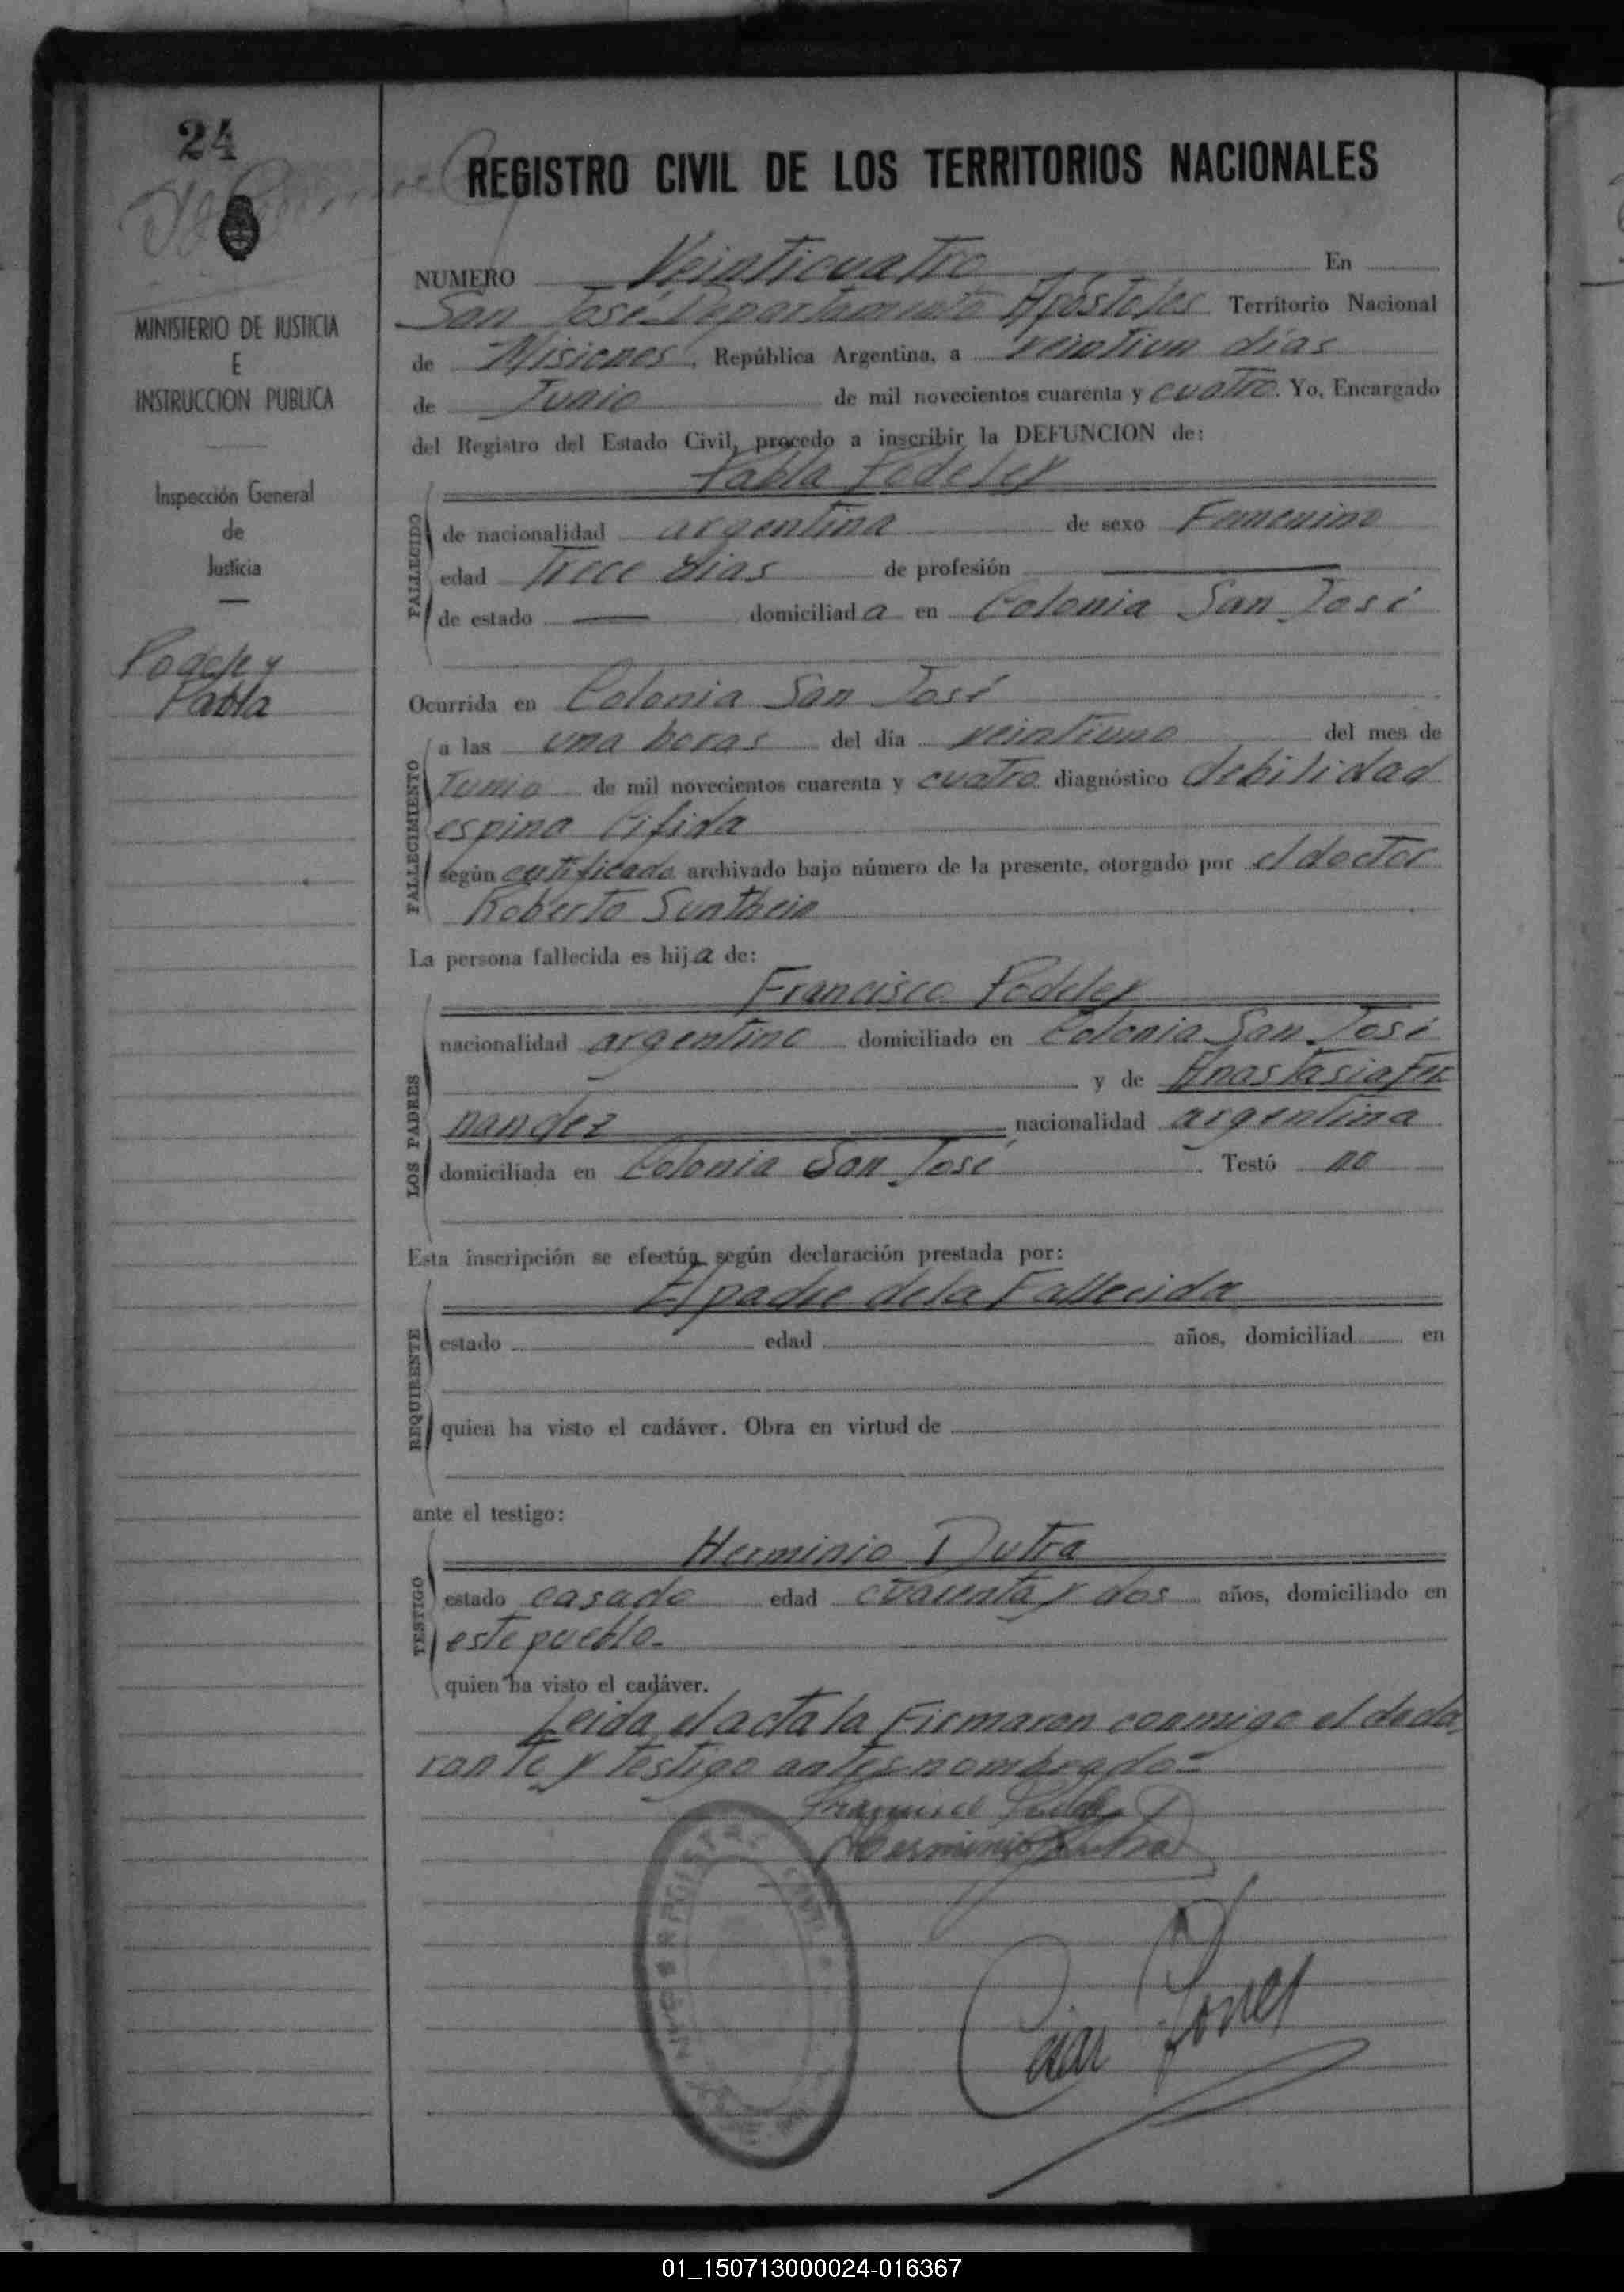 24
REGISTRO CIVIL DE LOS TERRITORIOS NACIONALES
MINISTERIO DE JUSTICIA
E
INSTRUCCION PUBLICA
Inspección General
de
Justicia
Podeley
Pabla
NUMERO Veinticuatro En
San José Departamento Apóstoles Territorio Nacional
de Misiones, República Argentina, a veintiun días
de Junio de mil novecientos cuarenta y cuatro. Yo, Encargado
del Registro del Estado Civil, procedo a inscribir la DEFUNCION de:
Pabla Podeley
FALLECIDO
de nacionalidad argentina de sexo Femenino
edad Trece días de profesión
de estado domiciliada en Colonia San José
Ocurrida en Colonia San José
FALLECIMIENTO
a las una horas del día veintiuno del mes de
Junio de mil novecientos cuarenta y cuatro diagnóstico debilidad
espina bifida
según certificado archivado bajo número de la presente, otorgado por el doctor
Roberto
La persona fallecida es hija de:
Francisco Podeley
LOS PADRES
nacionalidad argentino domiciliado en Colonia San José
y de Anastasia Fer
nandez nacionalidad argentina
domiciliada en Colonia San José Testó no
Esta inscripción se efectúa según declaración prestada por:
El padre de la Fallecida
REQUIRENTE
estado edad años, domiciliad en
quien ha visto el cadáver. Obra en virtud de
ante el testigo:
Herminio Dutra
TESTIGO
estado casado edad cuarenta y dos años, domiciliado en
este pueblo.
quien ha visto el cadáver.
Leida el acta la Firmaron conmigo el decla
rante y testigo antes nombrado=
Herminio Dutra
01_150713000024-016367